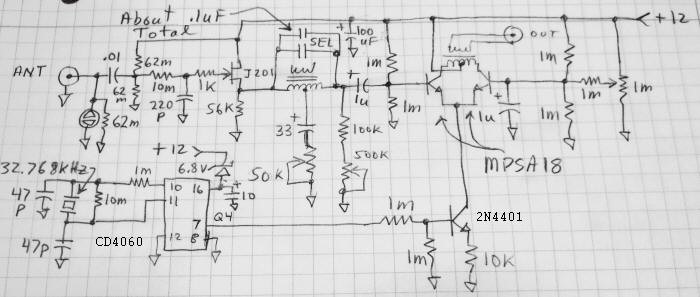 About .1uF
Total
+12
SEL
+
100
uF
OUT
.01
62m
ANT
J201
10m
1K
1m
1m
1m
1m
62
m
220
P
56K
+
1u
1m
+
1u
1m
62m
33
+
100k
MPSA18
50K
500k
+12
6.8V
32.768KHz
1m
10 16
+
10
47
P
10m
11
Q4
7
1m
2N4401
47P
CD4060
12 8
1m
10K